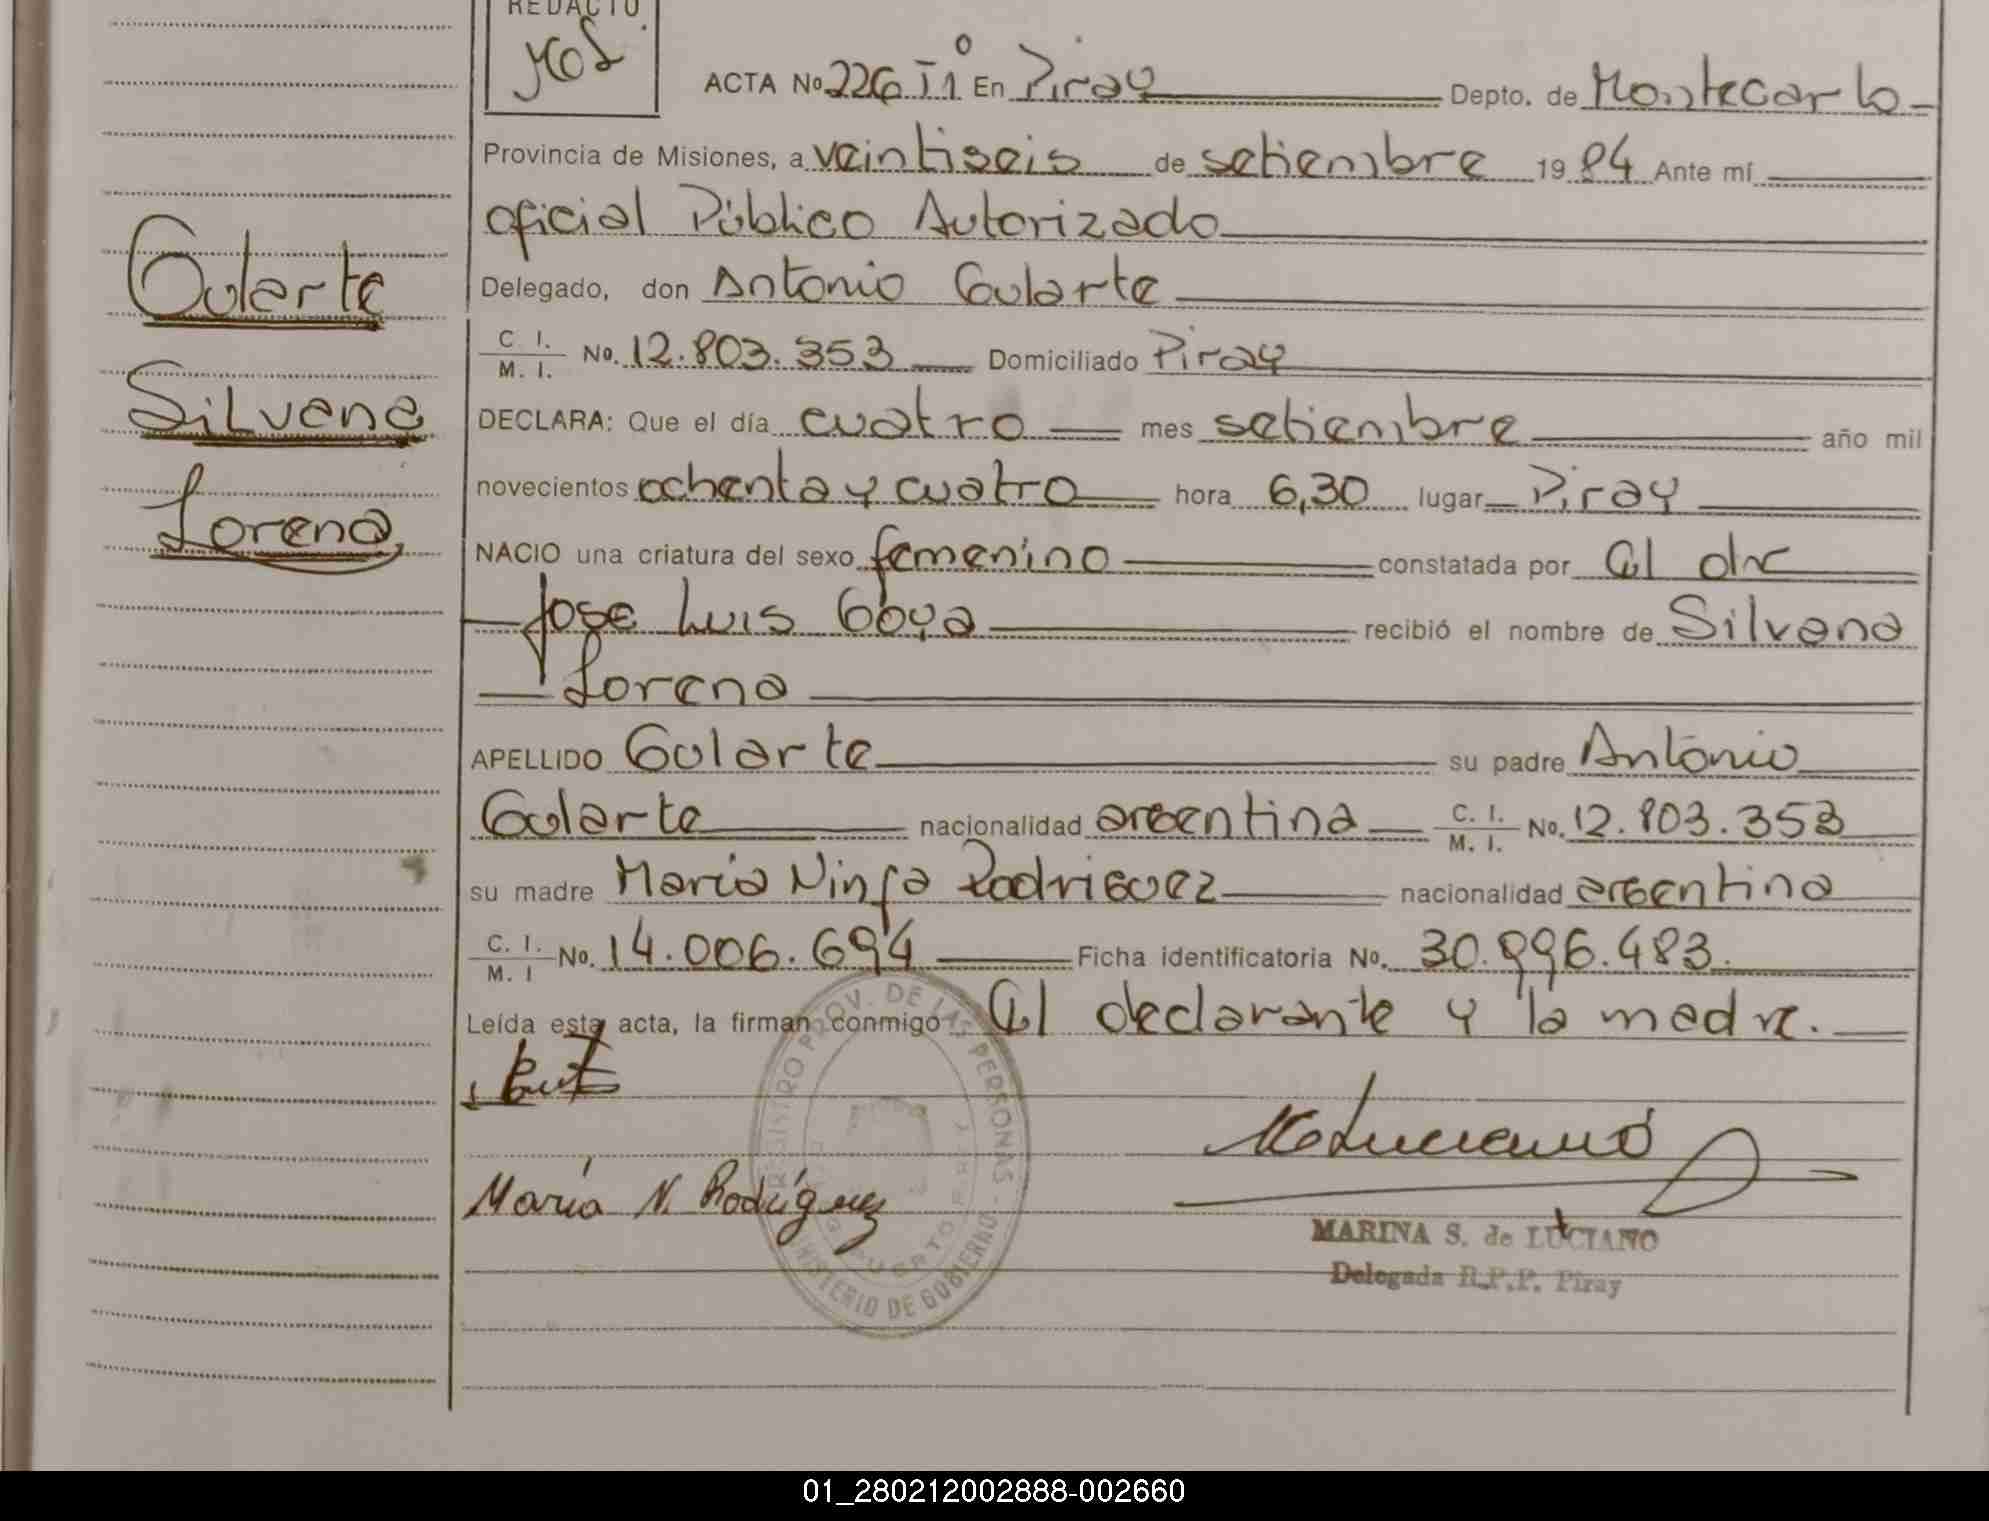 REDACTO
ACTA No 226 T1º En Piray Depto. de Montecarlo
Provincia de Misiones, a veintiseis de setiembre 1984 Ante mí
oficial Público Autorizado
Delegado, don Antonio Gularte
C. I. / M. I. No. 12.803.353 Domiciliado Piray
Gularte
DECLARA: Que el día cuatro mes setiembre año mil
Silvana
novecientos ochenta y cuatro hora 6,30 lugar Piray
Lorena
NACIO una criatura del sexo femenino constatada por el dr
Jose Luis Goya recibió el nombre de Silvana
Lorena
APELLIDO Gularte su padre Antonio
Gularte nacionalidad argentina C. I. / M. I. No. 12.803.353
su madre María Ninfa Rodriguez nacionalidad argentina
C. I. / M. I No. 14.006.694 Ficha identificatoria No. 30.996.483.
Leída esta acta, la firman conmigo el declarante y la madre.
REGISTRO PROV. DE LAS PERSONAS - MINISTERIO DE GOBIERNO
PUERTO PIRAY
Luciano
María N. Rodríguez
MARINA S. de LUCIANO
Delegada R.P.P. Piray
01_280212002888-002660